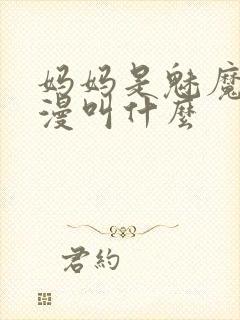 妈妈是魅魔
漫叫什麼
君約